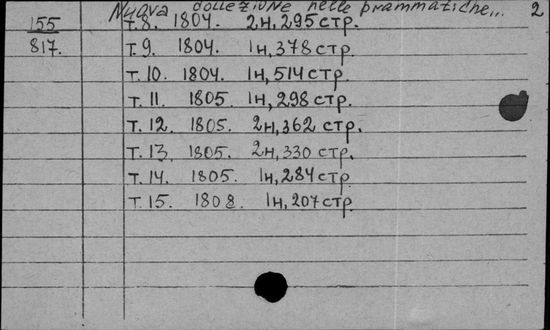 Nuova collezione nelle prammatiche... 2
155 т.8. 1804. 2н, 295 стр.
817. т.9. 1804. 1н, 378 стр
т.10. 1804. 1н, 514 стр.
т.11. 1805 1н, 298 стр.
т.12. 1805. 2н, 362 стр.
т.13. 1805. 2н, 330 стр.
т.14. 1805. 1н, 284 стр
т.15. 1808. 1н, 207 стр